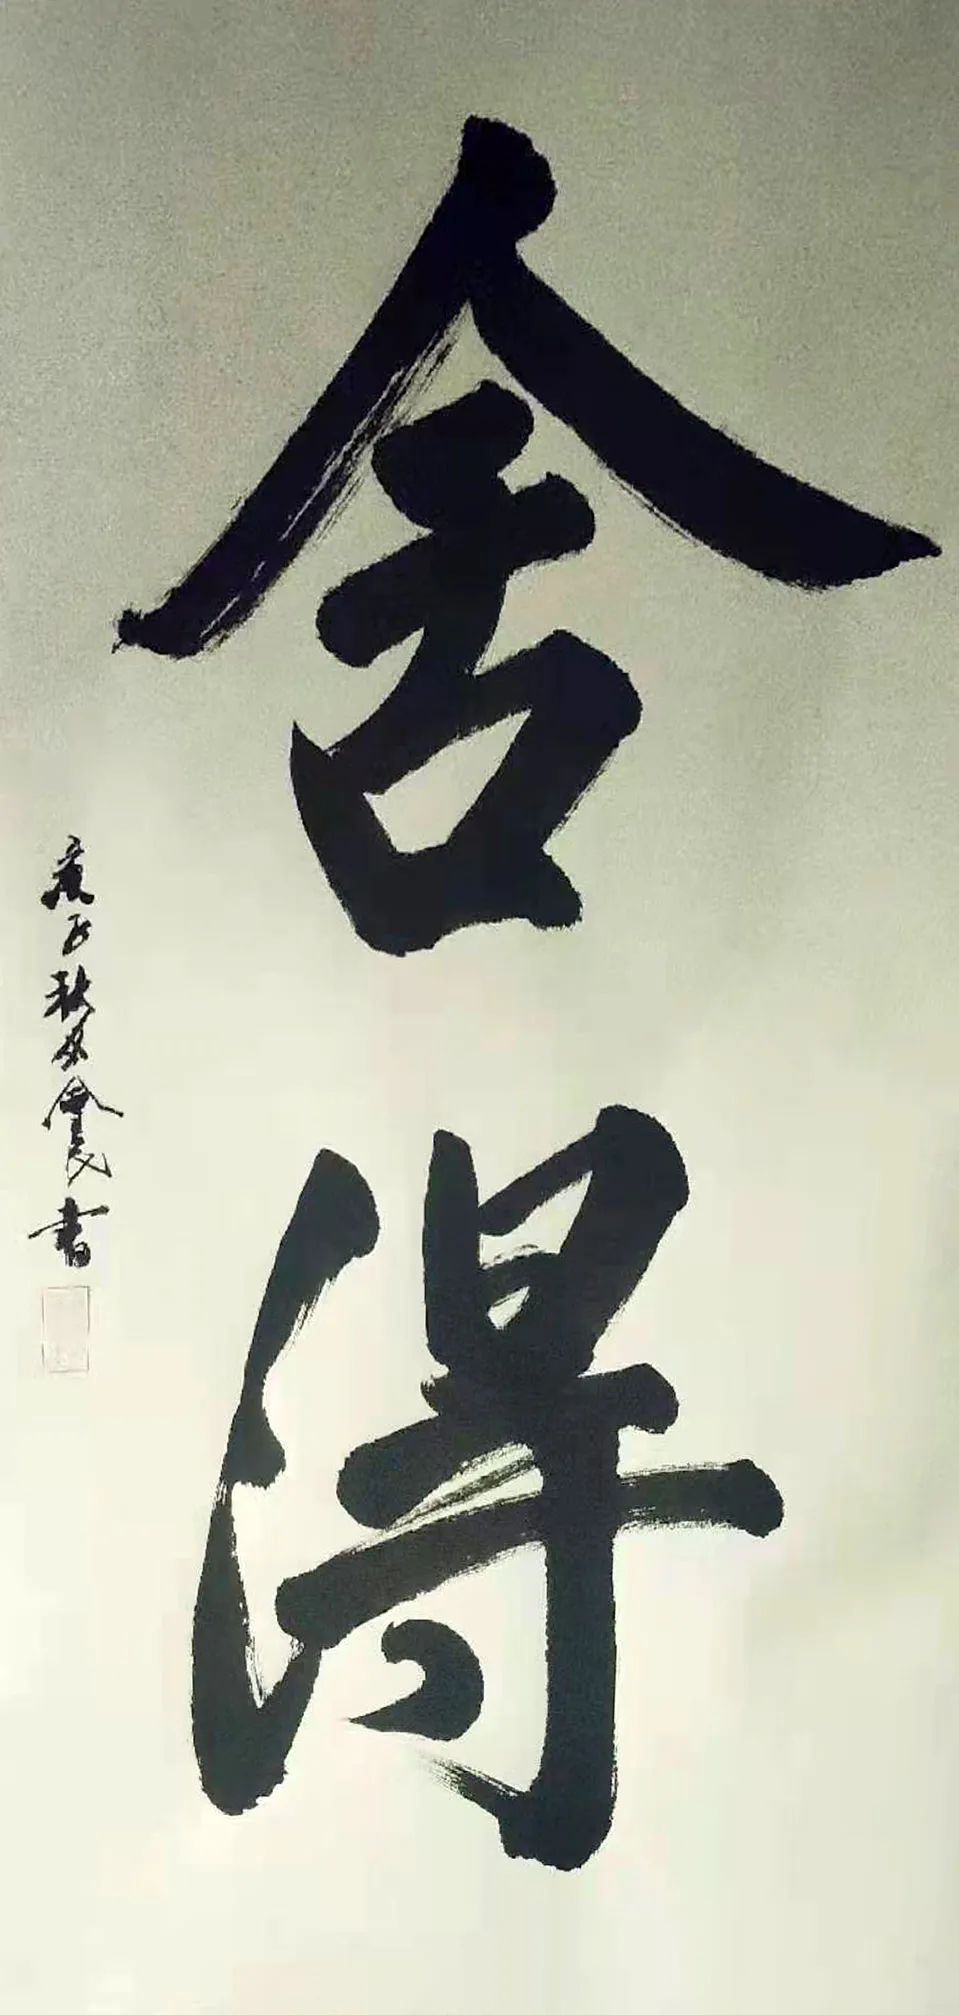 舍得
庚子秋月金民書